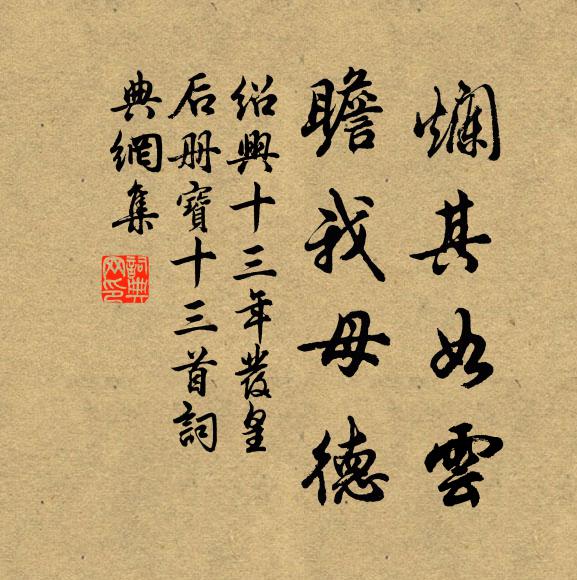 爛其如雲
瞻我母德
紹興十三年發皇
后册寶十三首詞
典網集
詞典
网印